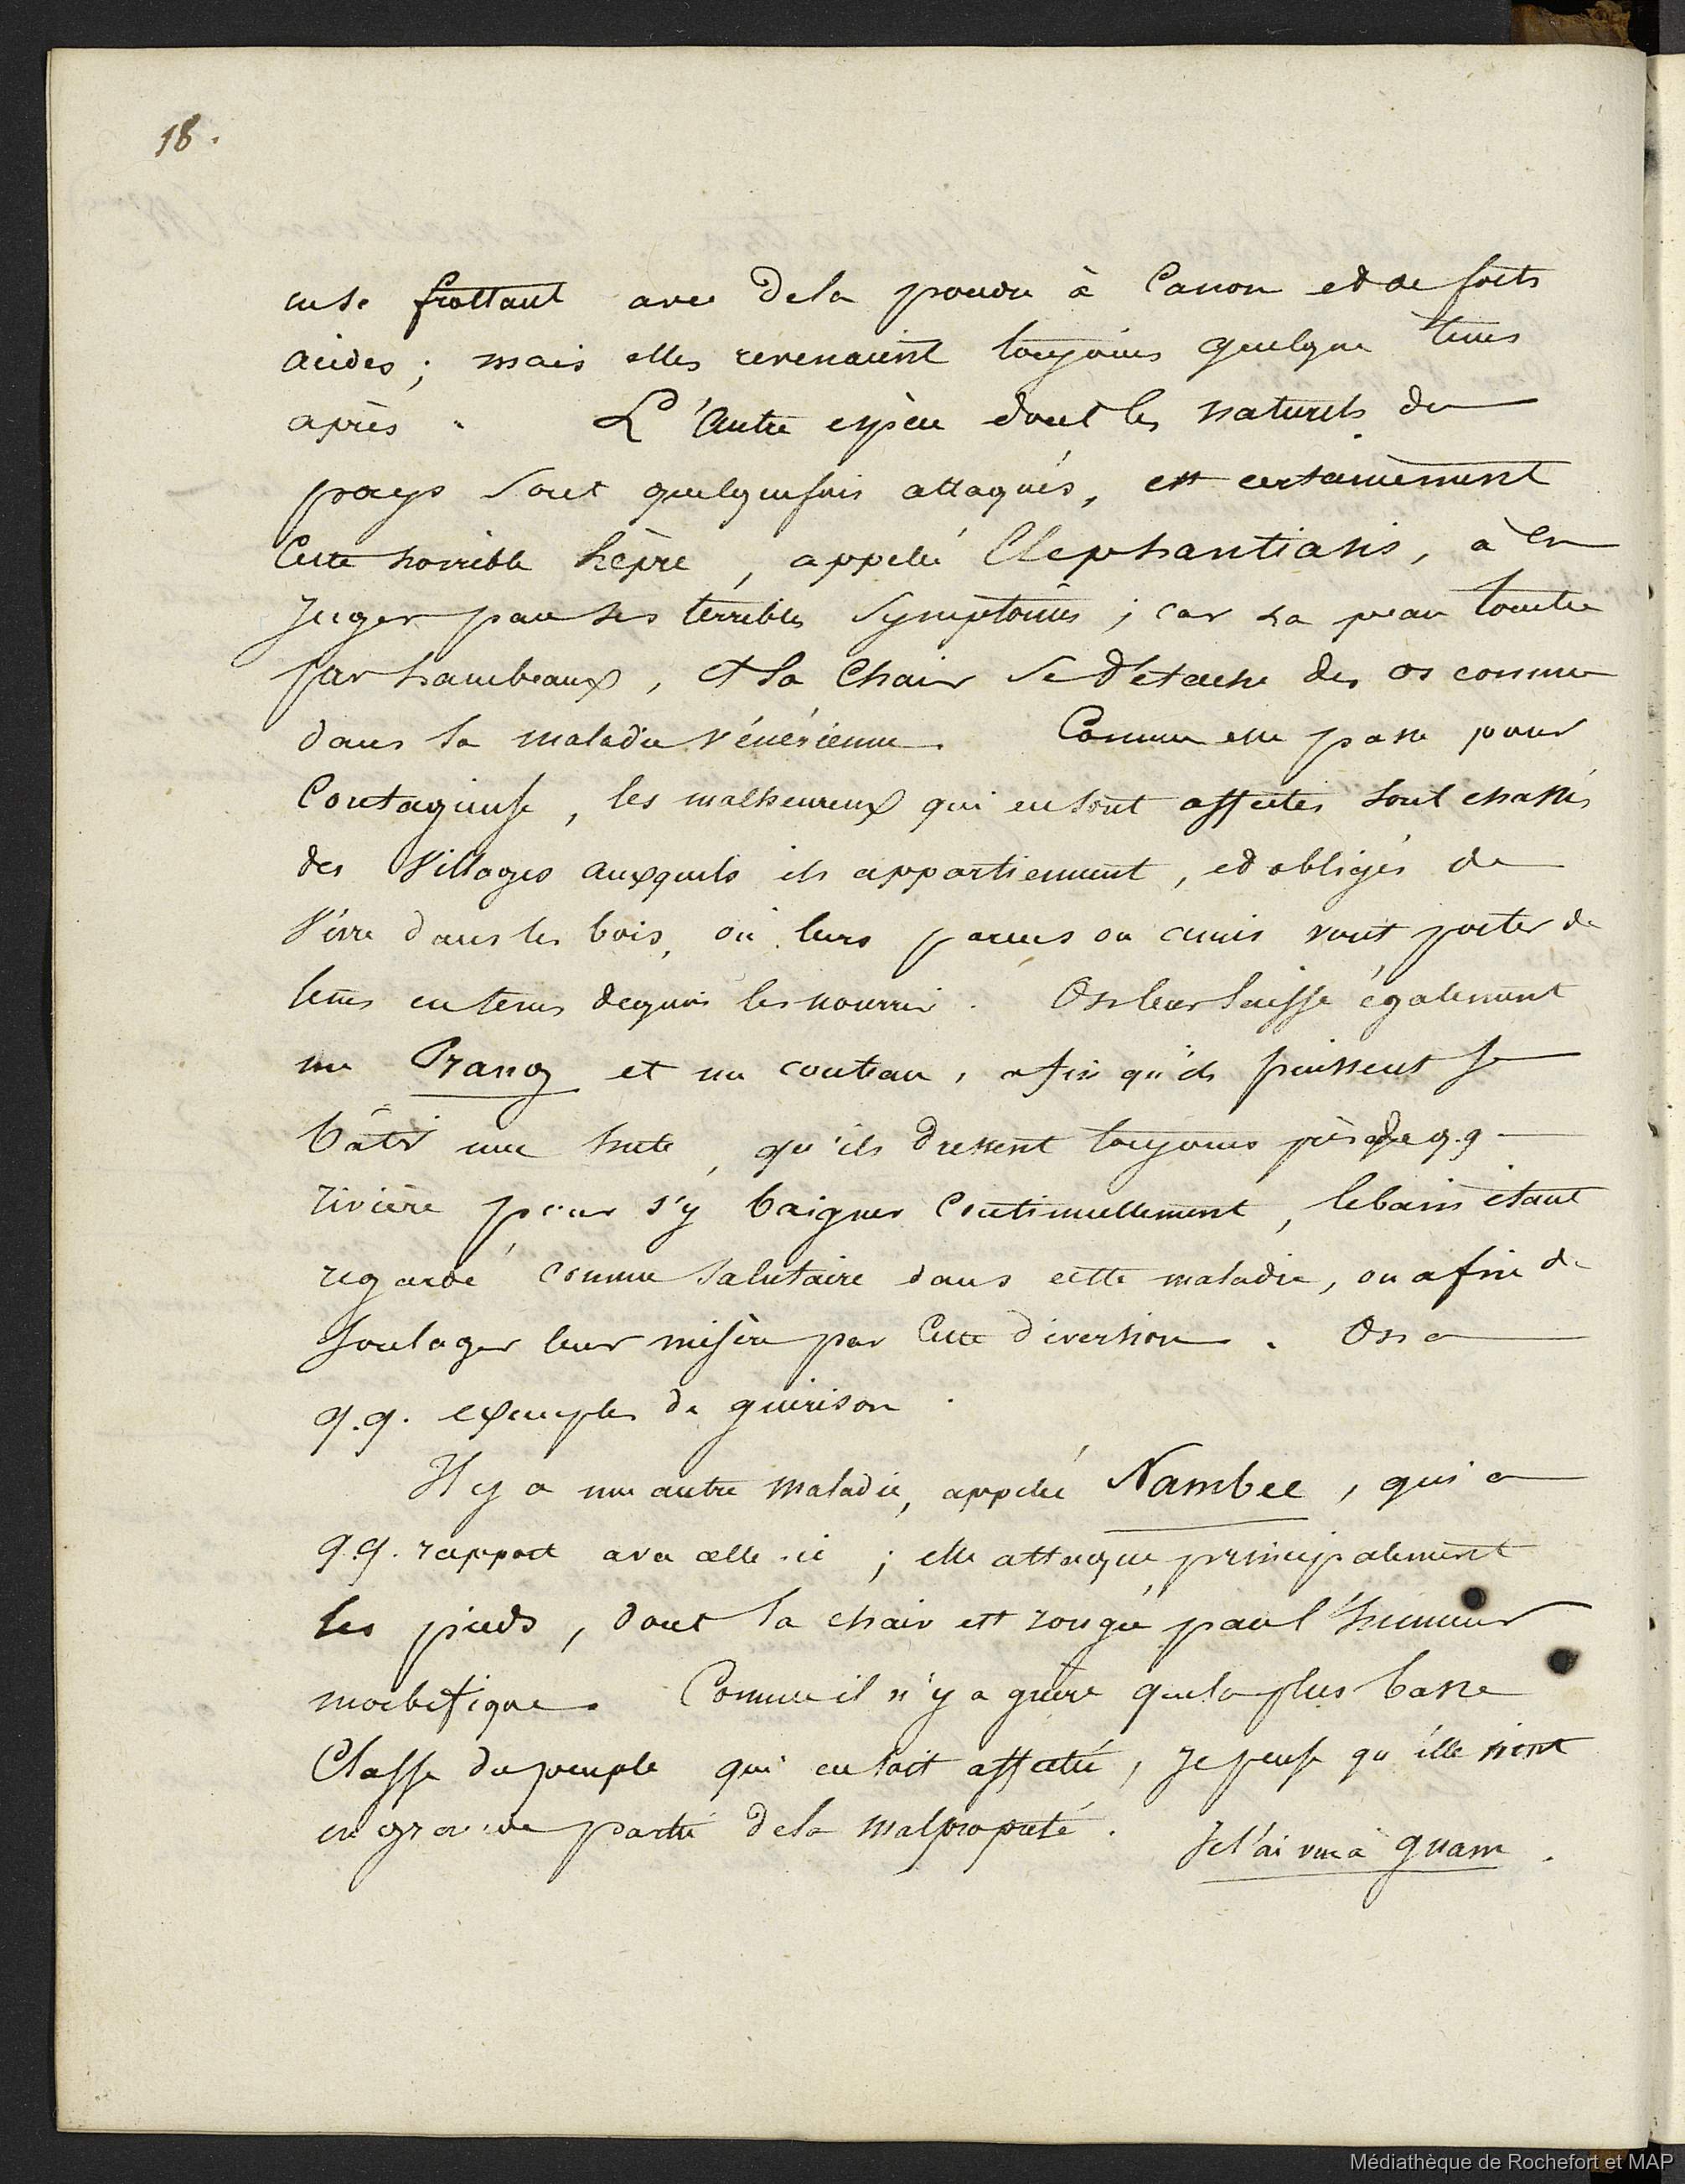 18.
en se frottant avec de la poudre à Canon et de forts
acides ; mais elles revenaient toujours quelque tems
après. L'Autre espèce dont les naturels du
pays sont quelquefois attaqués, est certainement
Cette horrible lèpre, appelée Elephantiasis, à en
juger par ses terribles Symptômes ; car la peau tombe
par lambeaux, et la Chair se détache des os comme
dans la maladie vénérienne. Comme elle passe pour
Contagieuse, les malheureux qui en sont affectés sont chassés
des Villages auxquels ils appartiennent, et obligés de
vivre dans les bois, où leurs parens ou amis vont porter de
tems en tems de quoi les nourrir. On leur laisse également
un Prang et un couteau, afin qu'ils puissent se
bâtir une hute, qu'ils dressent toujours près de q.q
rivière pour s'y baigner Continuellement, le bain étant
regardé comme salutaire dans cette maladie, ou afin de
soulager leur misère par Cette diversion. On a
q.q. exemples de guérison.
Il y a une autre maladie, appelée Nambee, qui a
q.q. rapport avec celle-ci ; elle attaque principalement
les pieds, dont la chair est rongée par l'humeur
morbifique. Comme il n'y a guère que la plus basse
Classe du peuple qui en soit affectée, je pense qu'elle vient
en grande partie de la malpropreté. Je l'ai vue à guam.
Médiathèque de Rochefort et MAP